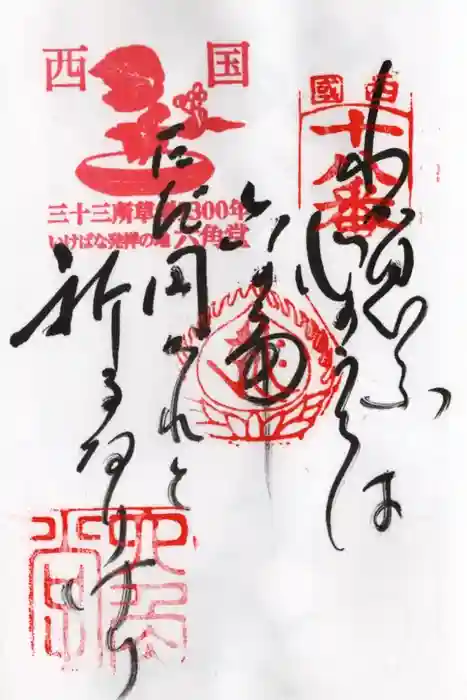 西國
十八番
わが思ふ
心のうちは
六の角
ただ円かれと
祈るなりけり
西国
三十三所草創1300年
いけばな発祥の地 六角堂